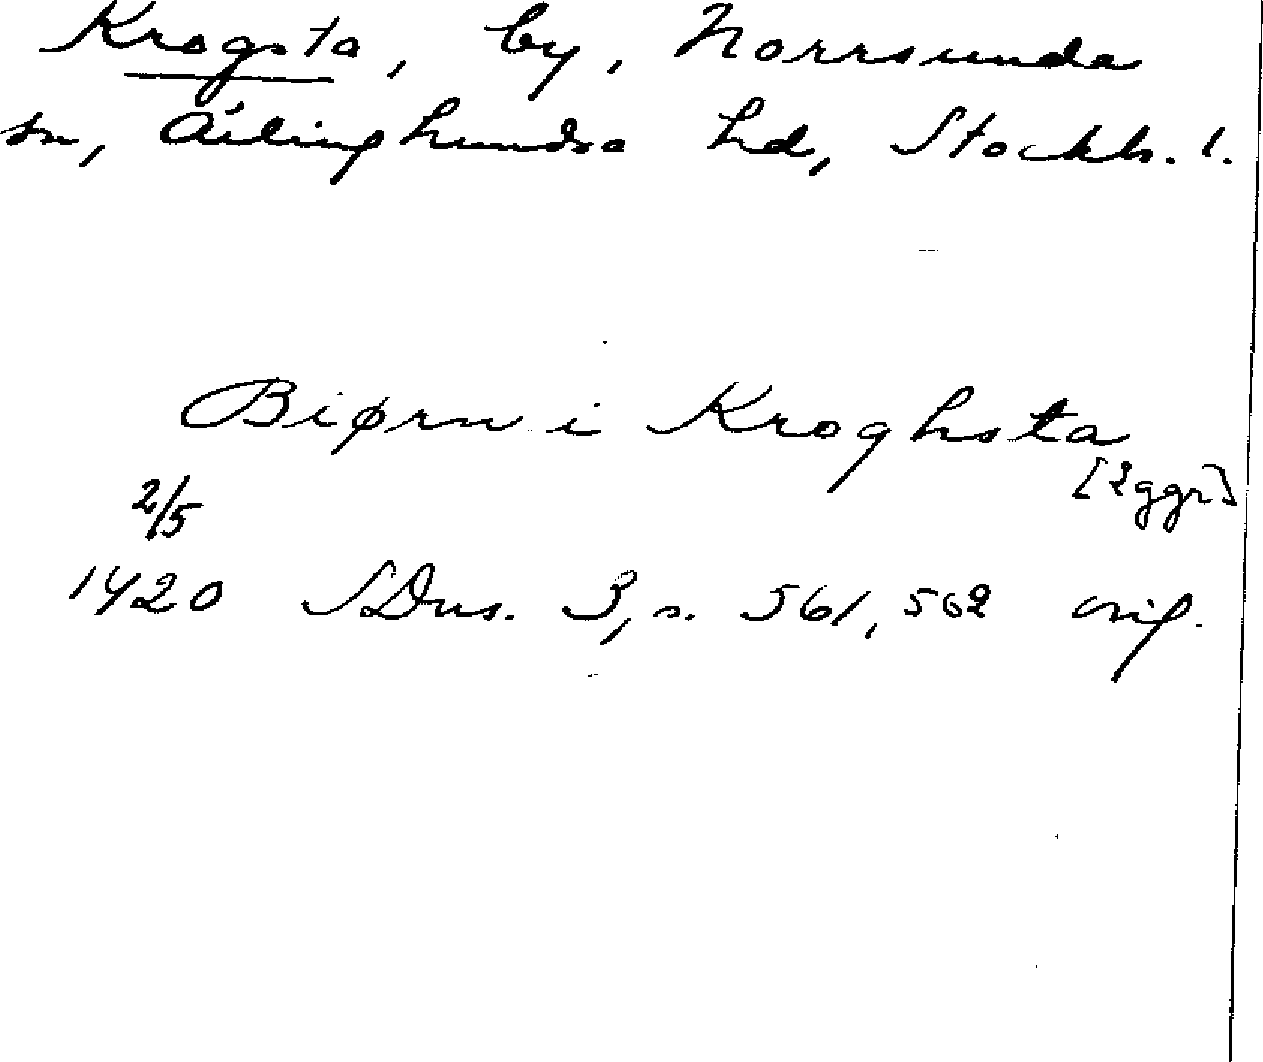 Krogsta, by, Norrsunda
sn, Ärlinghundra hd, Stockh. l.
Biørn i Kroghsta
[2 ggr]
2/5
1420 SDns. 3, s. 561, 562 orig.